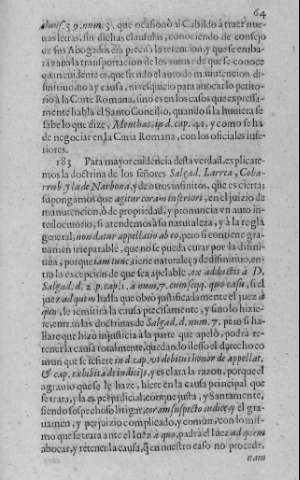 64
divis. 39. num. 3. que ocasionò al Cabildo à traer nue-
uas letras, sin dichas clausulas, conociendo de consejo
de sus Abogados era precisa la retencion, y que se emba-
razaua la transportacion de los autos: de que se conoce
quan euidente es, que siendo el auto de manutencion, di-
finitiuo, no ay causa, ni es juizio para auocar lo petito-
rio à la Corte Romana, sino es en los casos que expressa-
mente habla el Santo Concilio, quando si la huuiera se
sabe lo que dize, Menchac. in d. cap. 42. y como se ha
de negociar en la Curia Romana, con los oficiales infe-
riores.
183 Para mayor euidencia desta verdad, explicare-
mos la doctrina de los señores Salgad. Larrea, Coba-
rrub. y la de Narbona, y de otros infinitos, que es cierta;
supongamos que agitur coram inferiori, en el juizio de
manutencion, ò de propiedad, y pronuncia vn auto in-
terlocutorio, si atendemos à su naturaleza, y à la regla
general, non datur appellatio ab eo, pero si contiene gra-
uamen irreparable, que no se pueda curar por la difini-
tiua, porque tam tunc tiene naturaleza de difinitiuo, en-
tra la excepcion de que sea apelable, ex addictis à D.
Salgad. d. 2. p. cap. 1. à num. 7. cum seqq. quo casu, si el
juez ad quem halla que obrò justificadamente el juez à
quo, le remitirà la causa precisamente, y sino lo hizie-
re, entran las doctrinas de Salgad. d. num. 7. pero si ha-
llare que hizo injusticia à la parte que apelò, podrà re-
tener la causa totalmente, quedando ileso el derecho co-
mun que se refiere in d. cap. vt debitus honor de appellat.
& cap. exhibita de iudicijs, y es clara la razon, porque el
agrauio que se le haze, hiere en la causa principal que
se trata, y la es perjudicial, como que justa, y Santamente,
siendo sospechoso litigar, coram suspecto iudice, y el gra-
uamen, y perjuizio complicado, y comun, con lo mis-
mo que se trata ante el Iuez à quo, podrà el Iuez ad quem
abocar, y retener la causa, q̃ en nuestro caso no procede.
eam